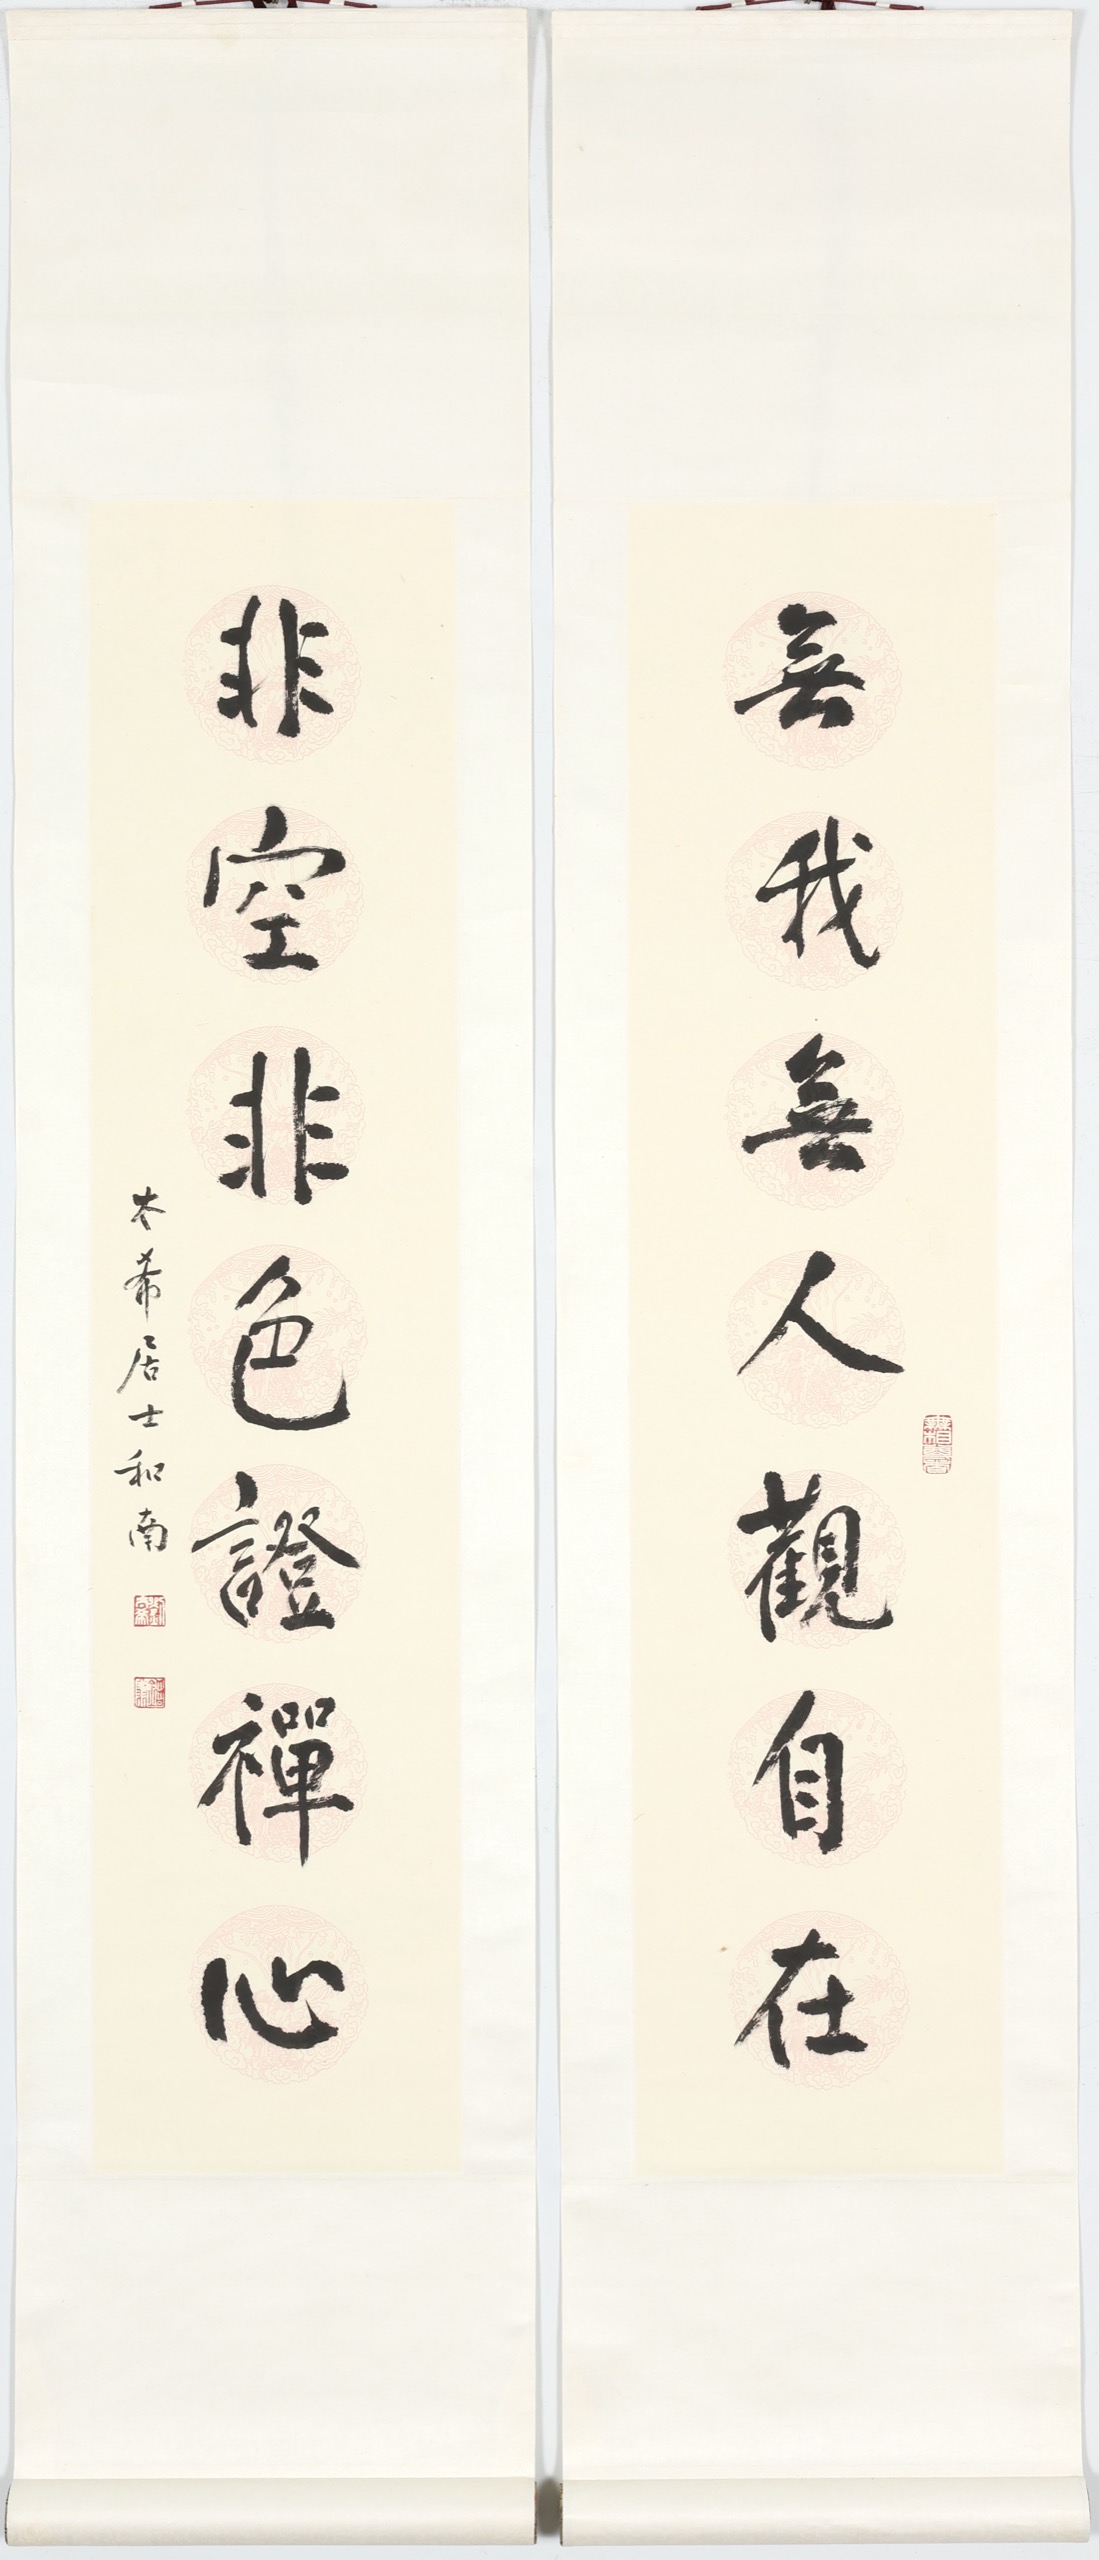 無我無人觀自在
非空非色證禪心
太希居士和南